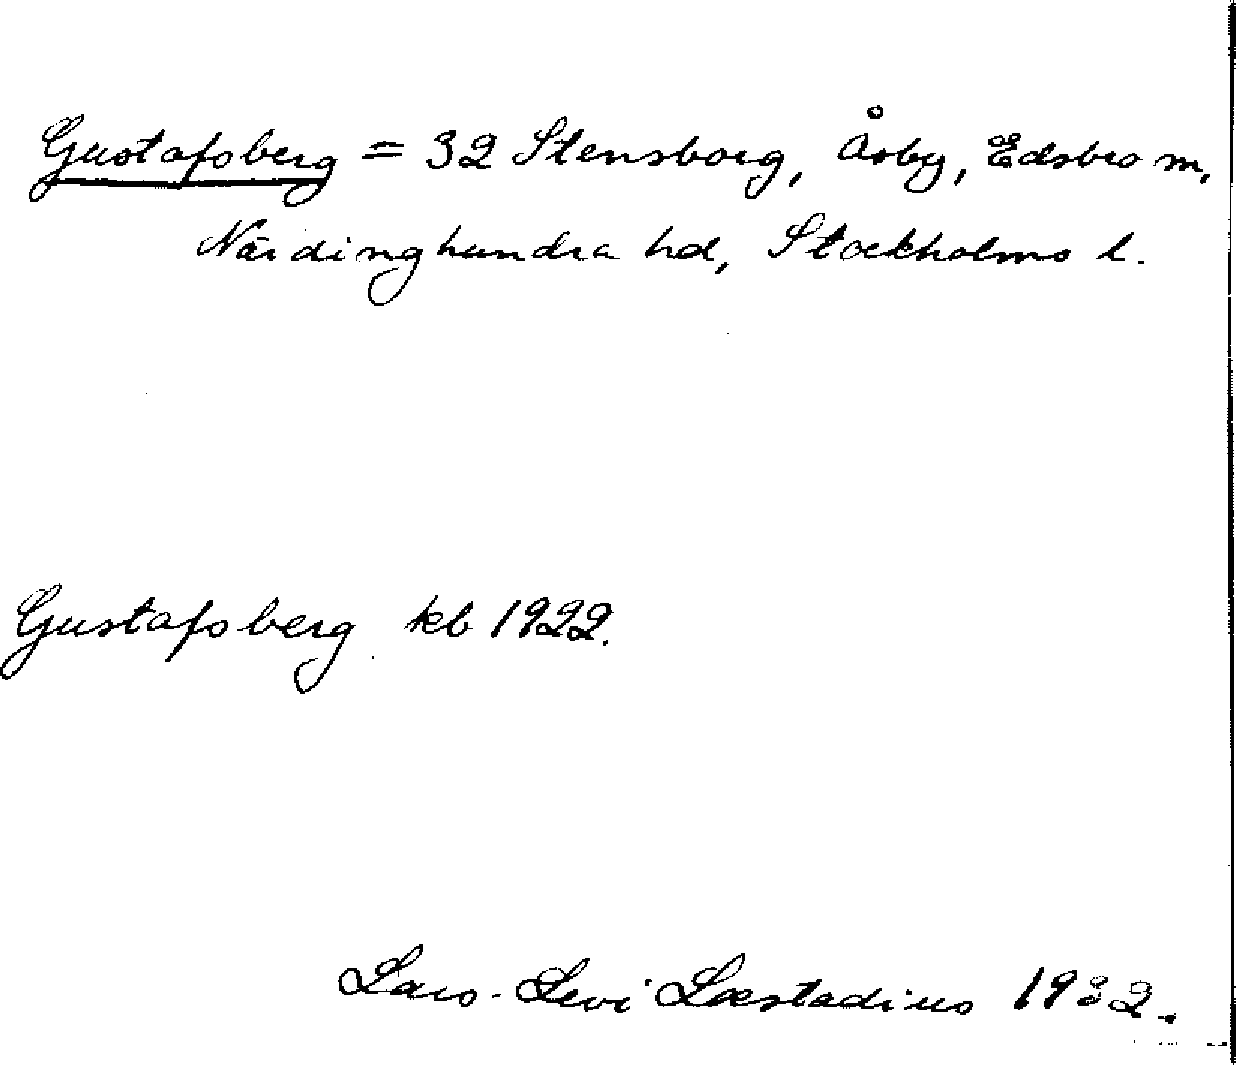 Gustafsberg = 32 Stensborg, Åsby, Edsbro m,
Närdinghundra hd, Stockholms l.
Gustafsberg kb 1922.
Lars-Levi Læstadius 1932.